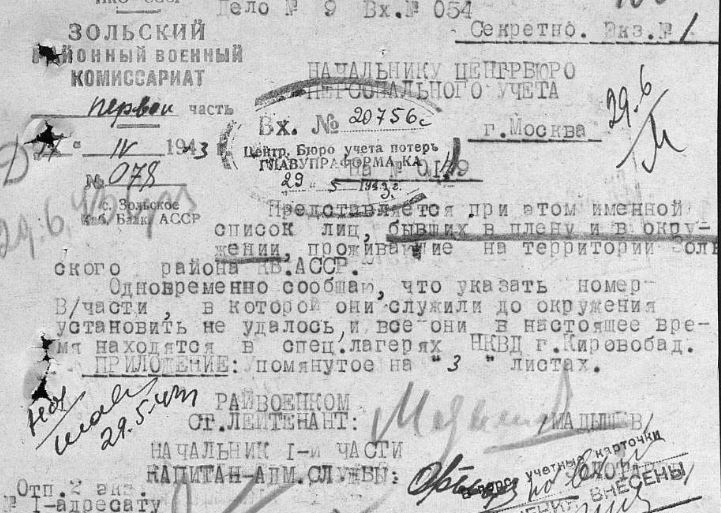 НКО СССР
Дело № 9 Вх.№ 054
ЗОЛЬСКИЙ
РАЙОННЫЙ ВОЕННЫЙ
КОМИССАРИАТ
первой часть
IV 1943
№ 078
с. Зольское
Каб. Балк. АССР
Секретно. Экз.№ 1
НАЧАЛЬНИКУ ЦЕНТРБЮРО
ПЕРСОНАЛЬНОГО УЧЕТА
г.Москва
29.6
Вх. № 20756с
Центр. Бюро учета потерь
ГЛАВУПРАФОРМА КА
29 5 1943 г.
На №
29.6.
Представляется при этом именной
список лиц, бывших в плену и в окру-
жении, проживавшие на территории Золь
ского района КБ.АССР.
Одновременно сообщаю, что указать номер
В/части , в которой они служили до окружения
установить не удалось,и все они в настоящее вре-
мя находятся в спец.лагерях НКВД г.Кировобад.
ПРИЛОЖЕНИЕ: помянутое на "3 " листах.
29.5.43
РАЙВОЕНКОМ
СТ.ЛЕЙТЕНАНТ: /МАДЫШЕВ/
НАЧАЛЬНИК I-й ЧАСТИ
КАПИТАН-АДМ.СЛУЖБЫ:
учетные карточки
ВНЕСЕНЫ
Отп.2 экз.
№ 1-адресату